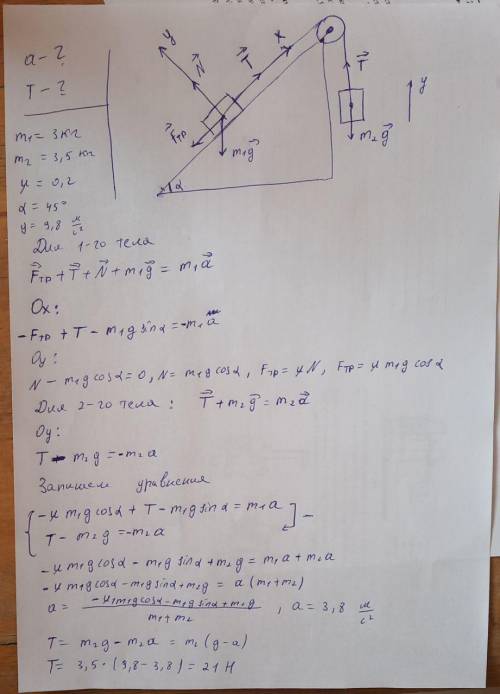 a - ?
T - ?
m₁ = 3 кг
m₂ = 3,5 кг
μ = 0,2
α = 45°
g = 9,8 м/с²
y
N⃗
T⃗
x
F⃗тр
m₁g⃗
α
T⃗
m₂g⃗
y
Для 1-го тела
F⃗тр + T⃗ + N⃗ + m₁g⃗ = m₁a⃗
Ox:
-Fтр + T - m₁g sinα = -m₁a
Oy:
N - m₁g cosα = 0, N = m₁g cosα, Fтр = μN, Fтр = μ m₁g cosα
Для 2-го тела: T⃗ + m₂g⃗ = m₂a⃗
Oy:
T - m₂g = -m₂a
Запишем уравнения
-μ m₁g cosα + T - m₁g sinα = m₁a
T - m₂g = -m₂a
-
-μ m₁g cosα - m₁g sinα + m₂g = m₁a + m₂a
-μ m₁g cosα - m₁g sinα + m₂g = a (m₁ + m₂)
a = (-μ m₁g cosα - m₁g sinα + m₂g) / (m₁ + m₂), a = 3,8 м/с²
T = m₂g - m₂a = m₂ (g - a)
T = 3,5 · (9,8 - 3,8) = 21 Н